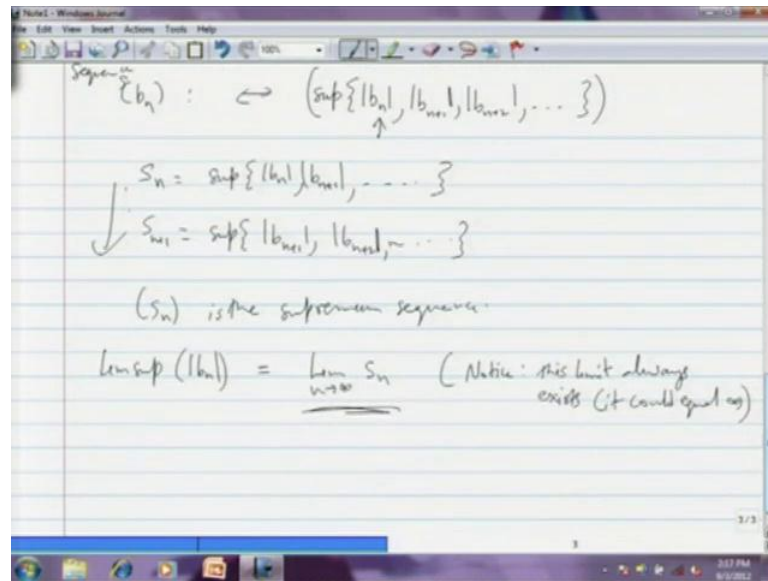 Note1 - Windows Journal
File Edit View Insert Actions Tools Help
100%
Sequence
(bₙ) : ↔ (sup{|bₙ|, |bₙ₊₁|, |bₙ₊₂|, ... })
↑
Sₙ = sup{|bₙ|, |bₙ₊₁|, - - - - . }
Sₙ₊₁ = sup{ |bₙ₊₁|, |bₙ₊₂|, ... }
(Sₙ) is the supremum sequence.
Limsup (|bₙ|) = Lim Sₙ ( Notice : this limit always
n→∞ exists (it could equal ∞)
3/3
3
3:17 PM
9/3/2012